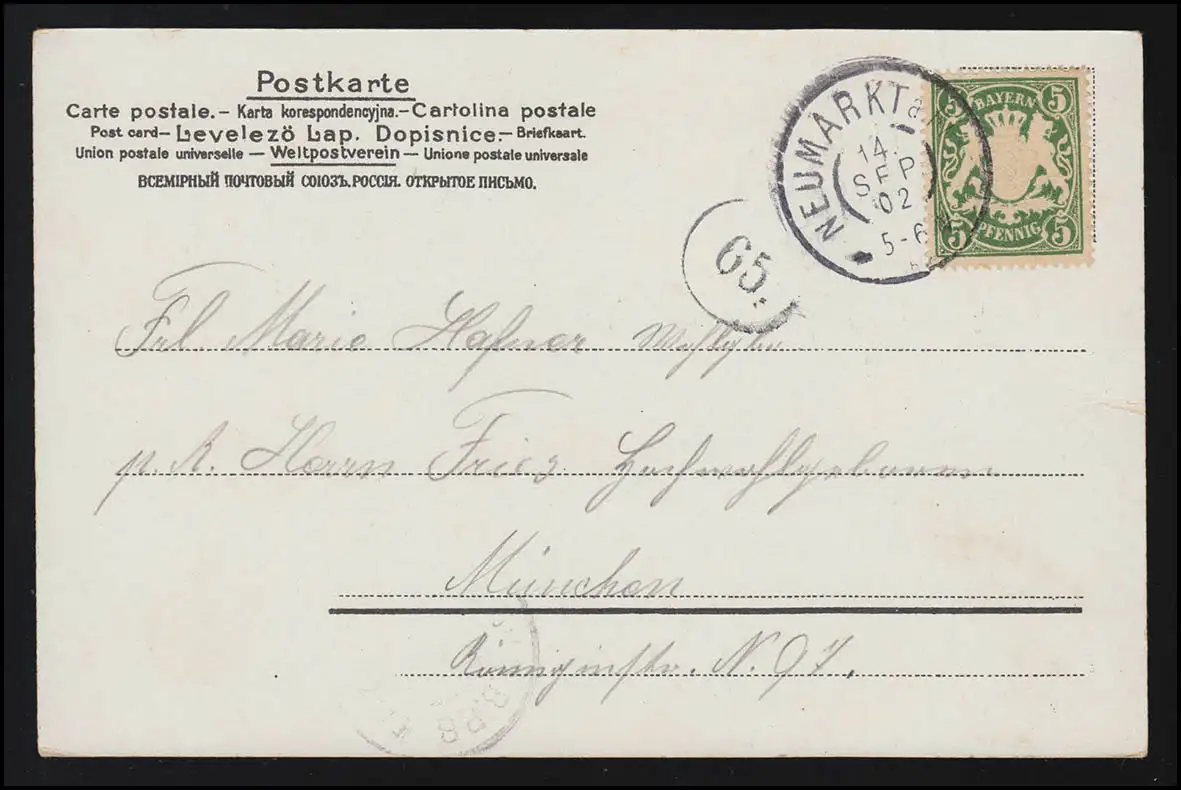 Postkarte
Carte postale. – Karta korespondencyjna. – Cartolina postale
Post card – Levelező Lap. Dopisnice. – Briefkaart.
Union postale universelle — Weltpostverein — Unione postale universale
ВСЕМІРНЫЙ ПОЧТОВЫЙ СОЮЗЪ. РОССІЯ. ОТКРЫТОЕ ПИСЬМО.
NEUMARKT a
14.
SEP
02
5-6 N
BAYERN
5 5
PFENNIG
5 5
65.
Frl. Marie Hafner
p. A. Herrn Fries Hochwohlgeboren
München
Königinstr. N. 97.